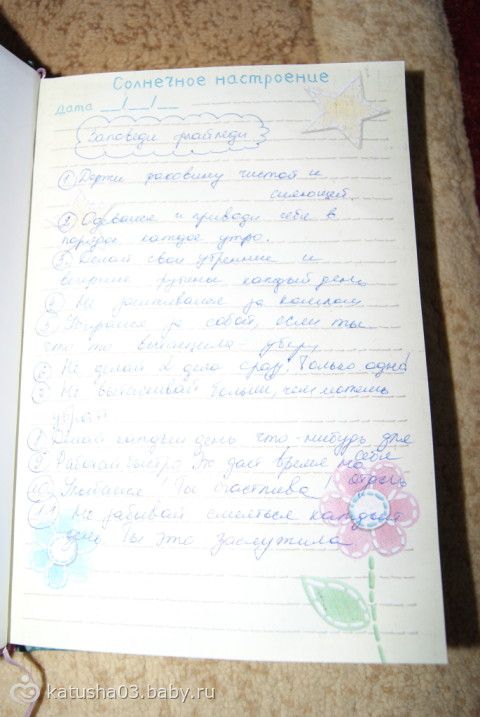 Солнечное настроение
дата __/__/__
Заповеди флайледи
① Держи раковину чистой и
сияющей.
② Одевайся и приводи себя в
порядок каждое утро.
3. Делай свои утренние и
вечерние рутины каждый день
Не засиживайся за компом
Убирайся за собой, если ты
что то вытащила – убери
Не делай 2 дела сразу. Только одно!
Не вытаскивай больше, чем можешь
убрать
Делай каждый день что-нибудь для
себя
9 Работай быстро это даст время на
отдых
10 Улыбайся! Ты счастлива!
11 Не забывай смеяться каждый
день Ты это заслужила
katusha03.baby.ru